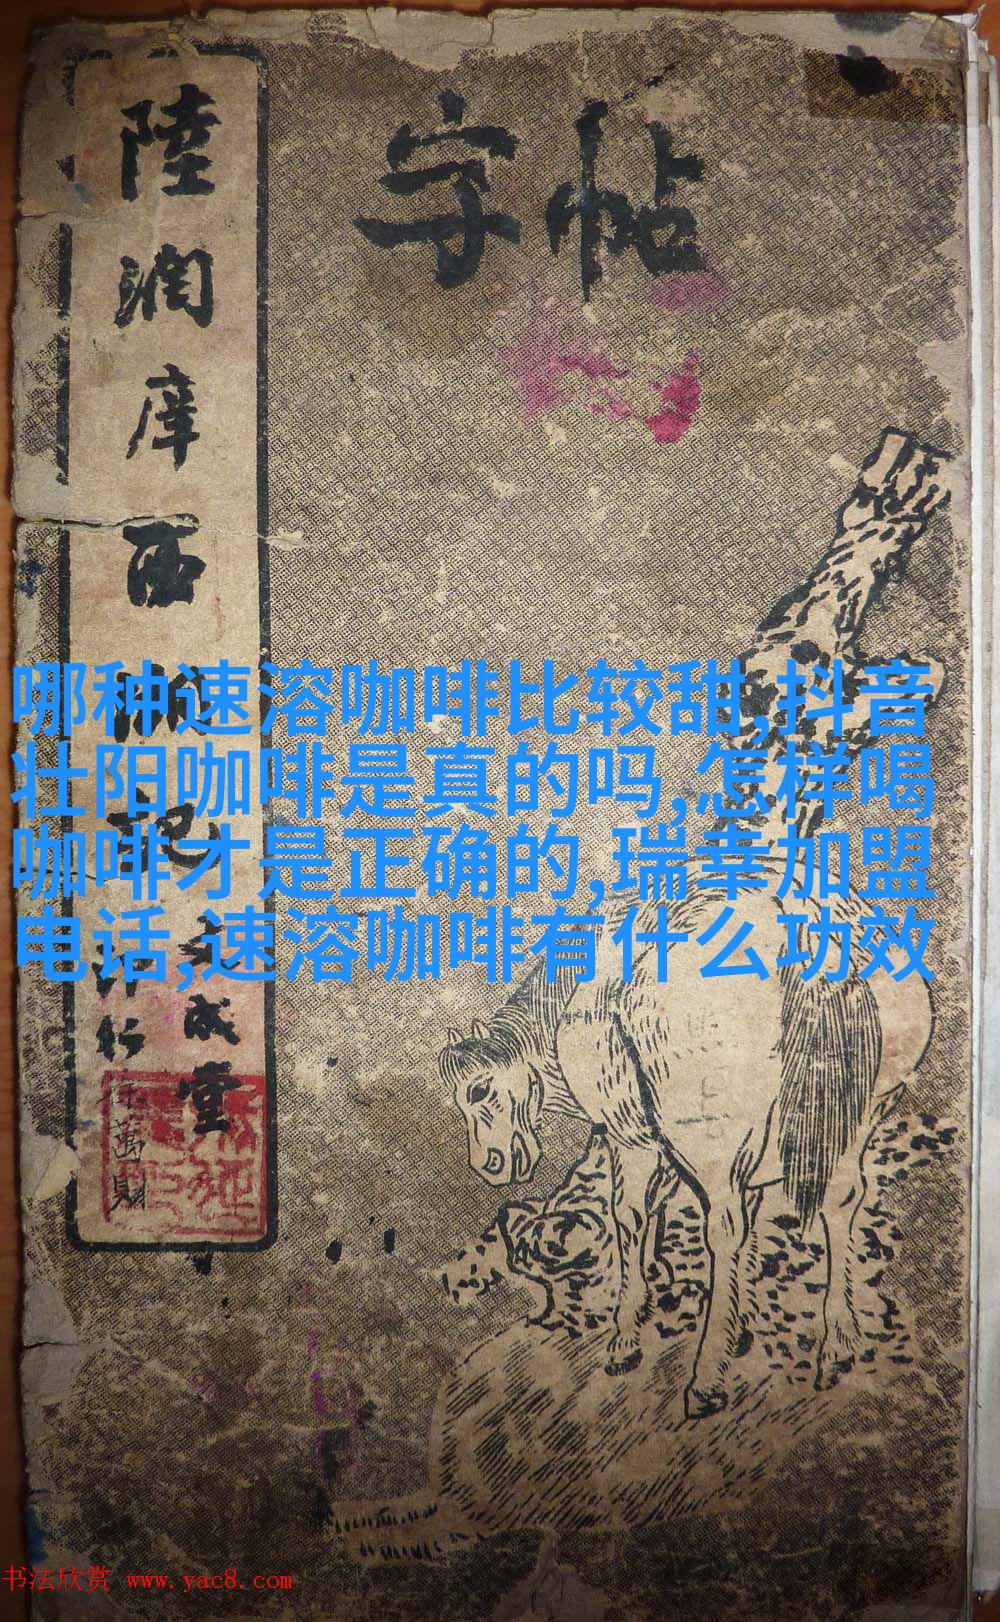 字帖
陸潤庠西湖記
文成堂
印行
徐萬財
哪种速溶咖啡比较甜,抖音
壮阳咖啡是真的吗,怎样喝
咖啡才是正确的,瑞幸加盟
电话,速溶咖啡有什么功效
书法欣赏 www.yac8.com